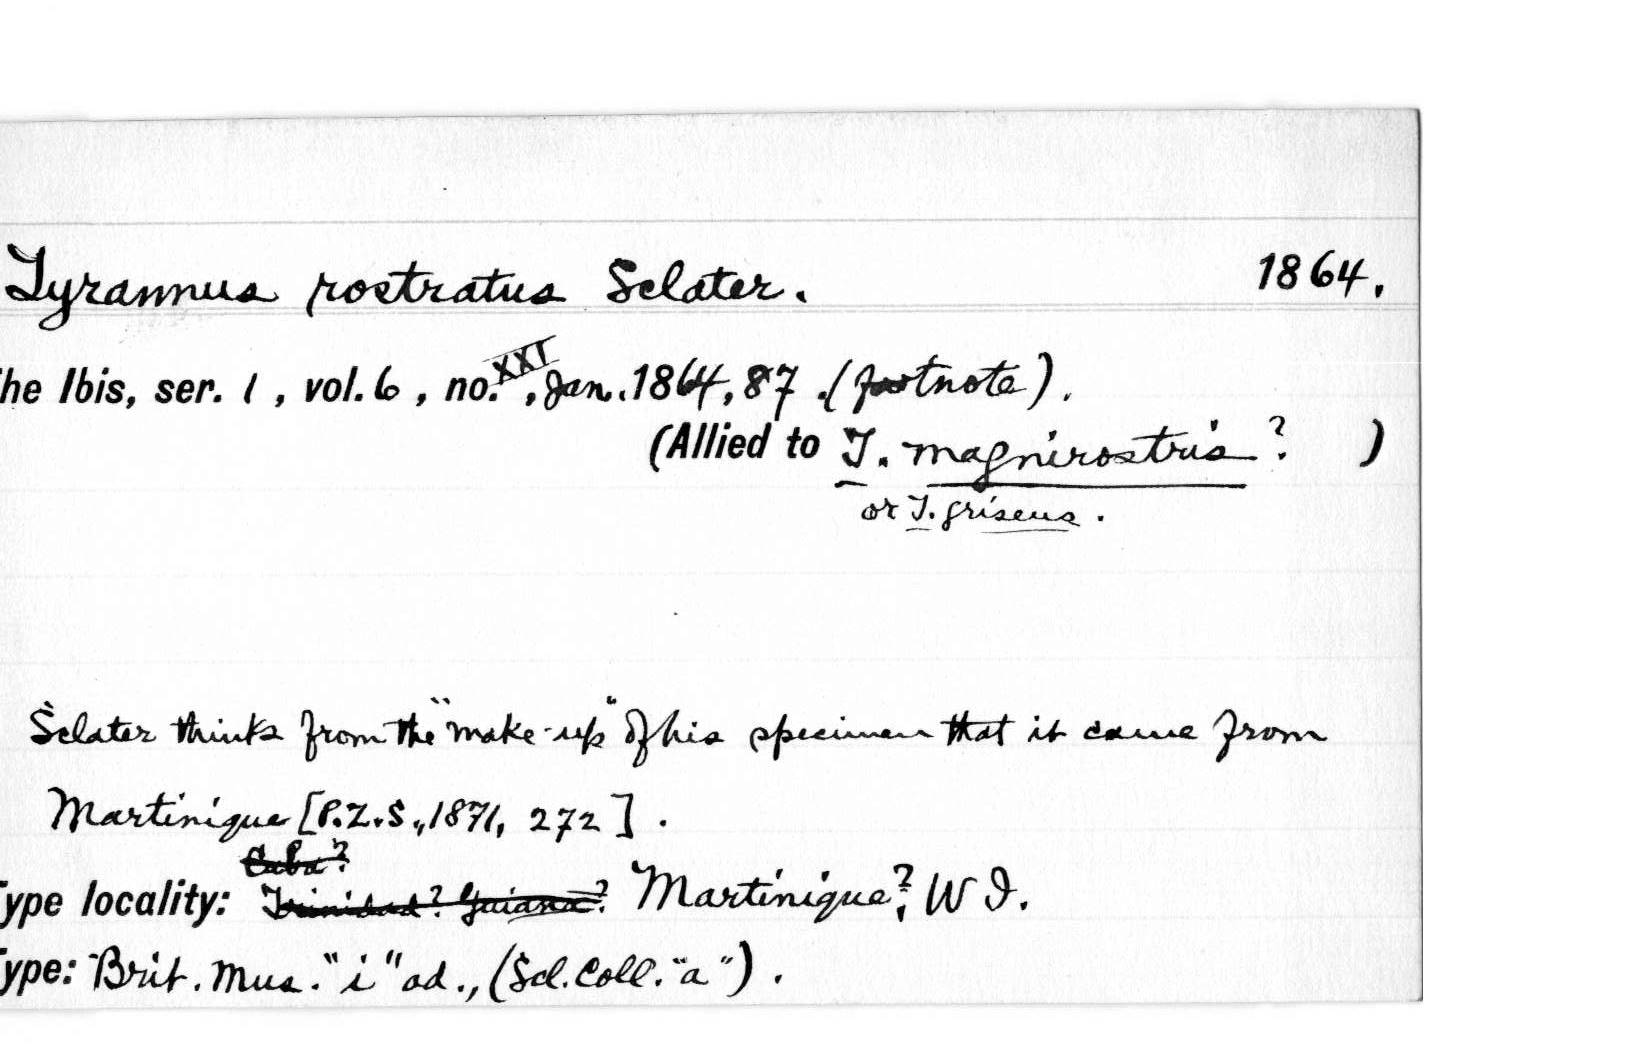 Tyrannus rostratus Sclater. 1864.
he Ibis, ser. 1, vol. 6, no. XXI, Jan. 1864, 87. (footnote).
(Allied to T. magnirostris? )
or T. griseus.
Sclater thinks from the "make-up" of his specimen that it came from
Martinique [P.Z.S., 1871, 272].
Cuba?
ype locality: Trinidad? Guiana? Martinique?, W I.
ype: Brit. Mus. "i" ad., (Scl. Coll. "a").